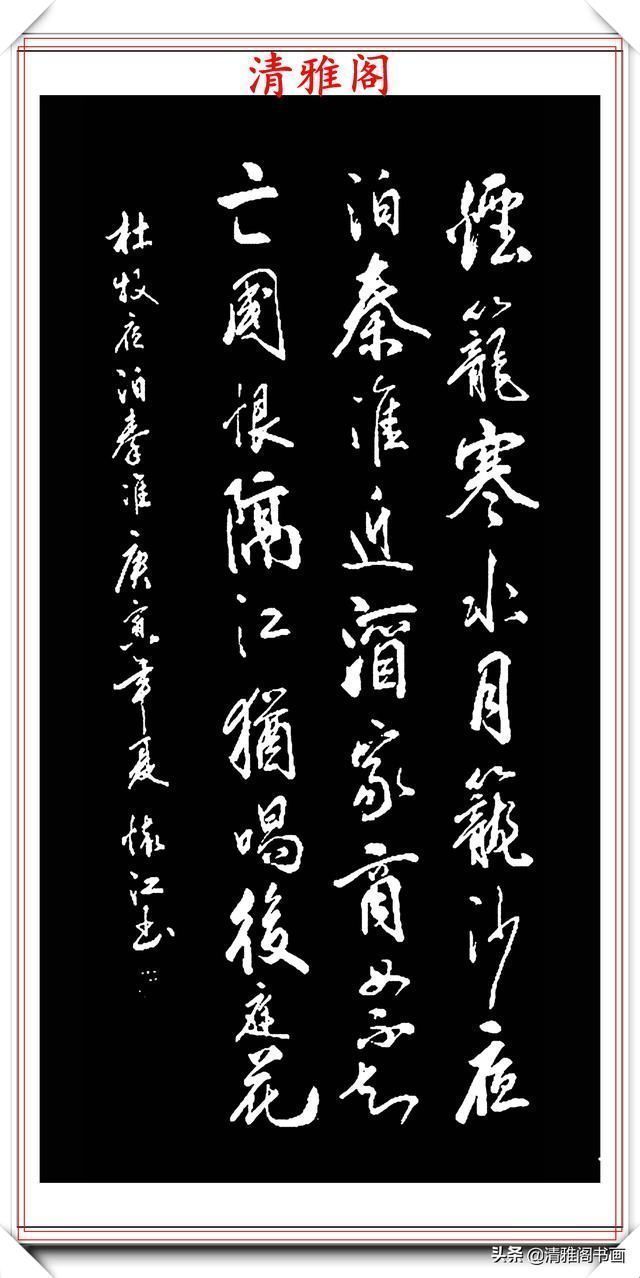 清雅阁
煙籠寒水月籠沙夜
泊秦淮近酒家商女不知
亡國恨隔江猶唱後庭花
杜牧夜泊秦淮庚寅年夏懷江書
头条@清雅阁书画